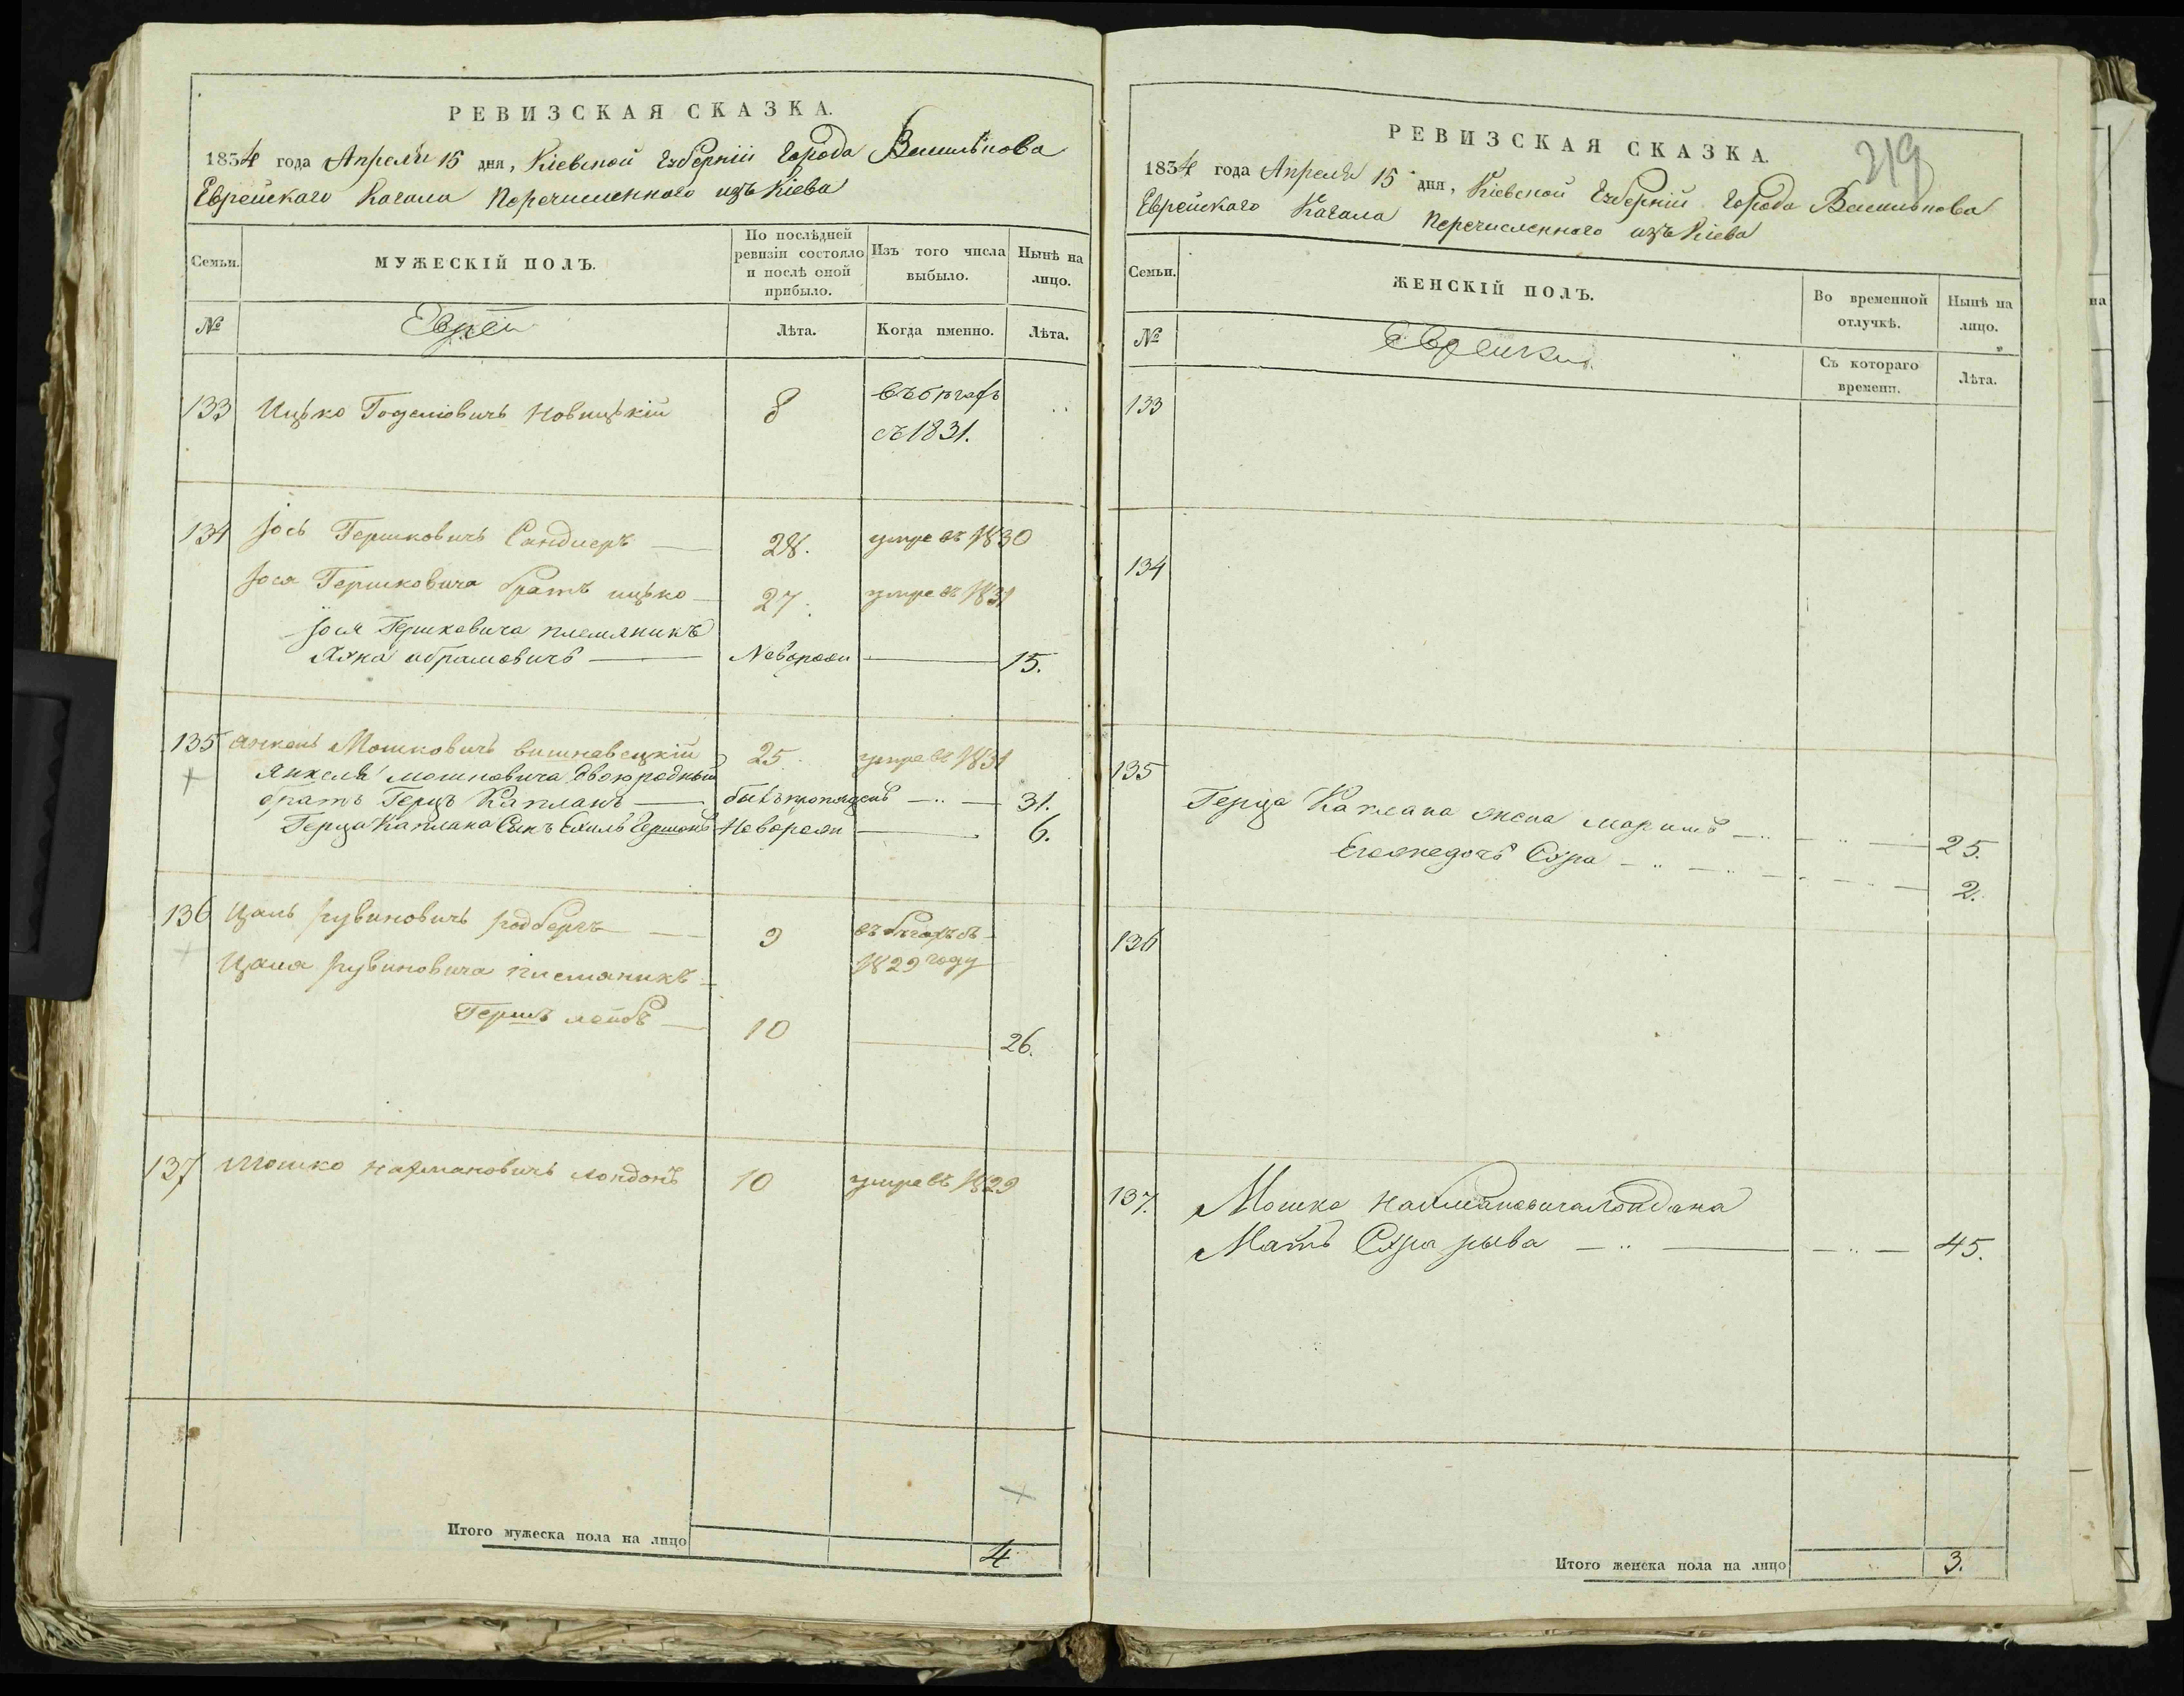 РЕВИЗСКАЯ СКАЗКА.
1834 года Апреля 15 дня, Кіевской Губерніи Города Василькова
Еврейскаго Кагала Перечисленнаго изъ Кіева
Семьи.
МУЖЕСКІЙ ПОЛЪ.
По послѣдней ревизіи состояло и послѣ оной прибыло.
Изъ того числа выбыло.
Нынѣ на лицо.
№
Евреи
Лѣта.
Когда именно.
Лѣта.
133 Ицько Новицькій 8 въ бѣгахъ
съ 1831.
134 Іось Гершковичъ Сандлеръ 28. умре въ 1830
Іося Гершковича братъ ицько 27. умре въ 1831
Іося Гершковича племяникъ
абрамовичъ Неворози 15.
135 Янкель Мошковичъ вишневецкій 25. умре въ 1831
Янкеля мошковича двоюродный
братъ Герцъ Капланъ былъ пропущенъ 31.
Герца Каплана Сынъ Неворози 6.
136 Цаль рувиновичъ родбергъ 9 въ бѣгахъ съ
Цаля рувиновича племяникъ 1829 году
Гершъ лейбъ 10 26.
137 Мошко нахмановичъ лондонъ 10 умре въ 1829
Итого мужеска пола на лицо 4
РЕВИЗСКАЯ СКАЗКА.
219
1834 года Апреля 15 дня, Кіевской Губерніи Города Василькова
Еврейскаго Кагала Перечисленнаго изъ Кіева
Семьи.
ЖЕНСКІЙ ПОЛЪ.
Во временной отлучкѣ.
Нынѣ на лицо.
№
Еврейки
Съ котораго времени.
Лѣта.
133
134
135
Герца Каплана жена маримъ 25.
Егожедочь Сура 2.
136
137. Мошка нахмановича лондона
Мать Сура рыва 45.
Итого женска пола на лицо 3.